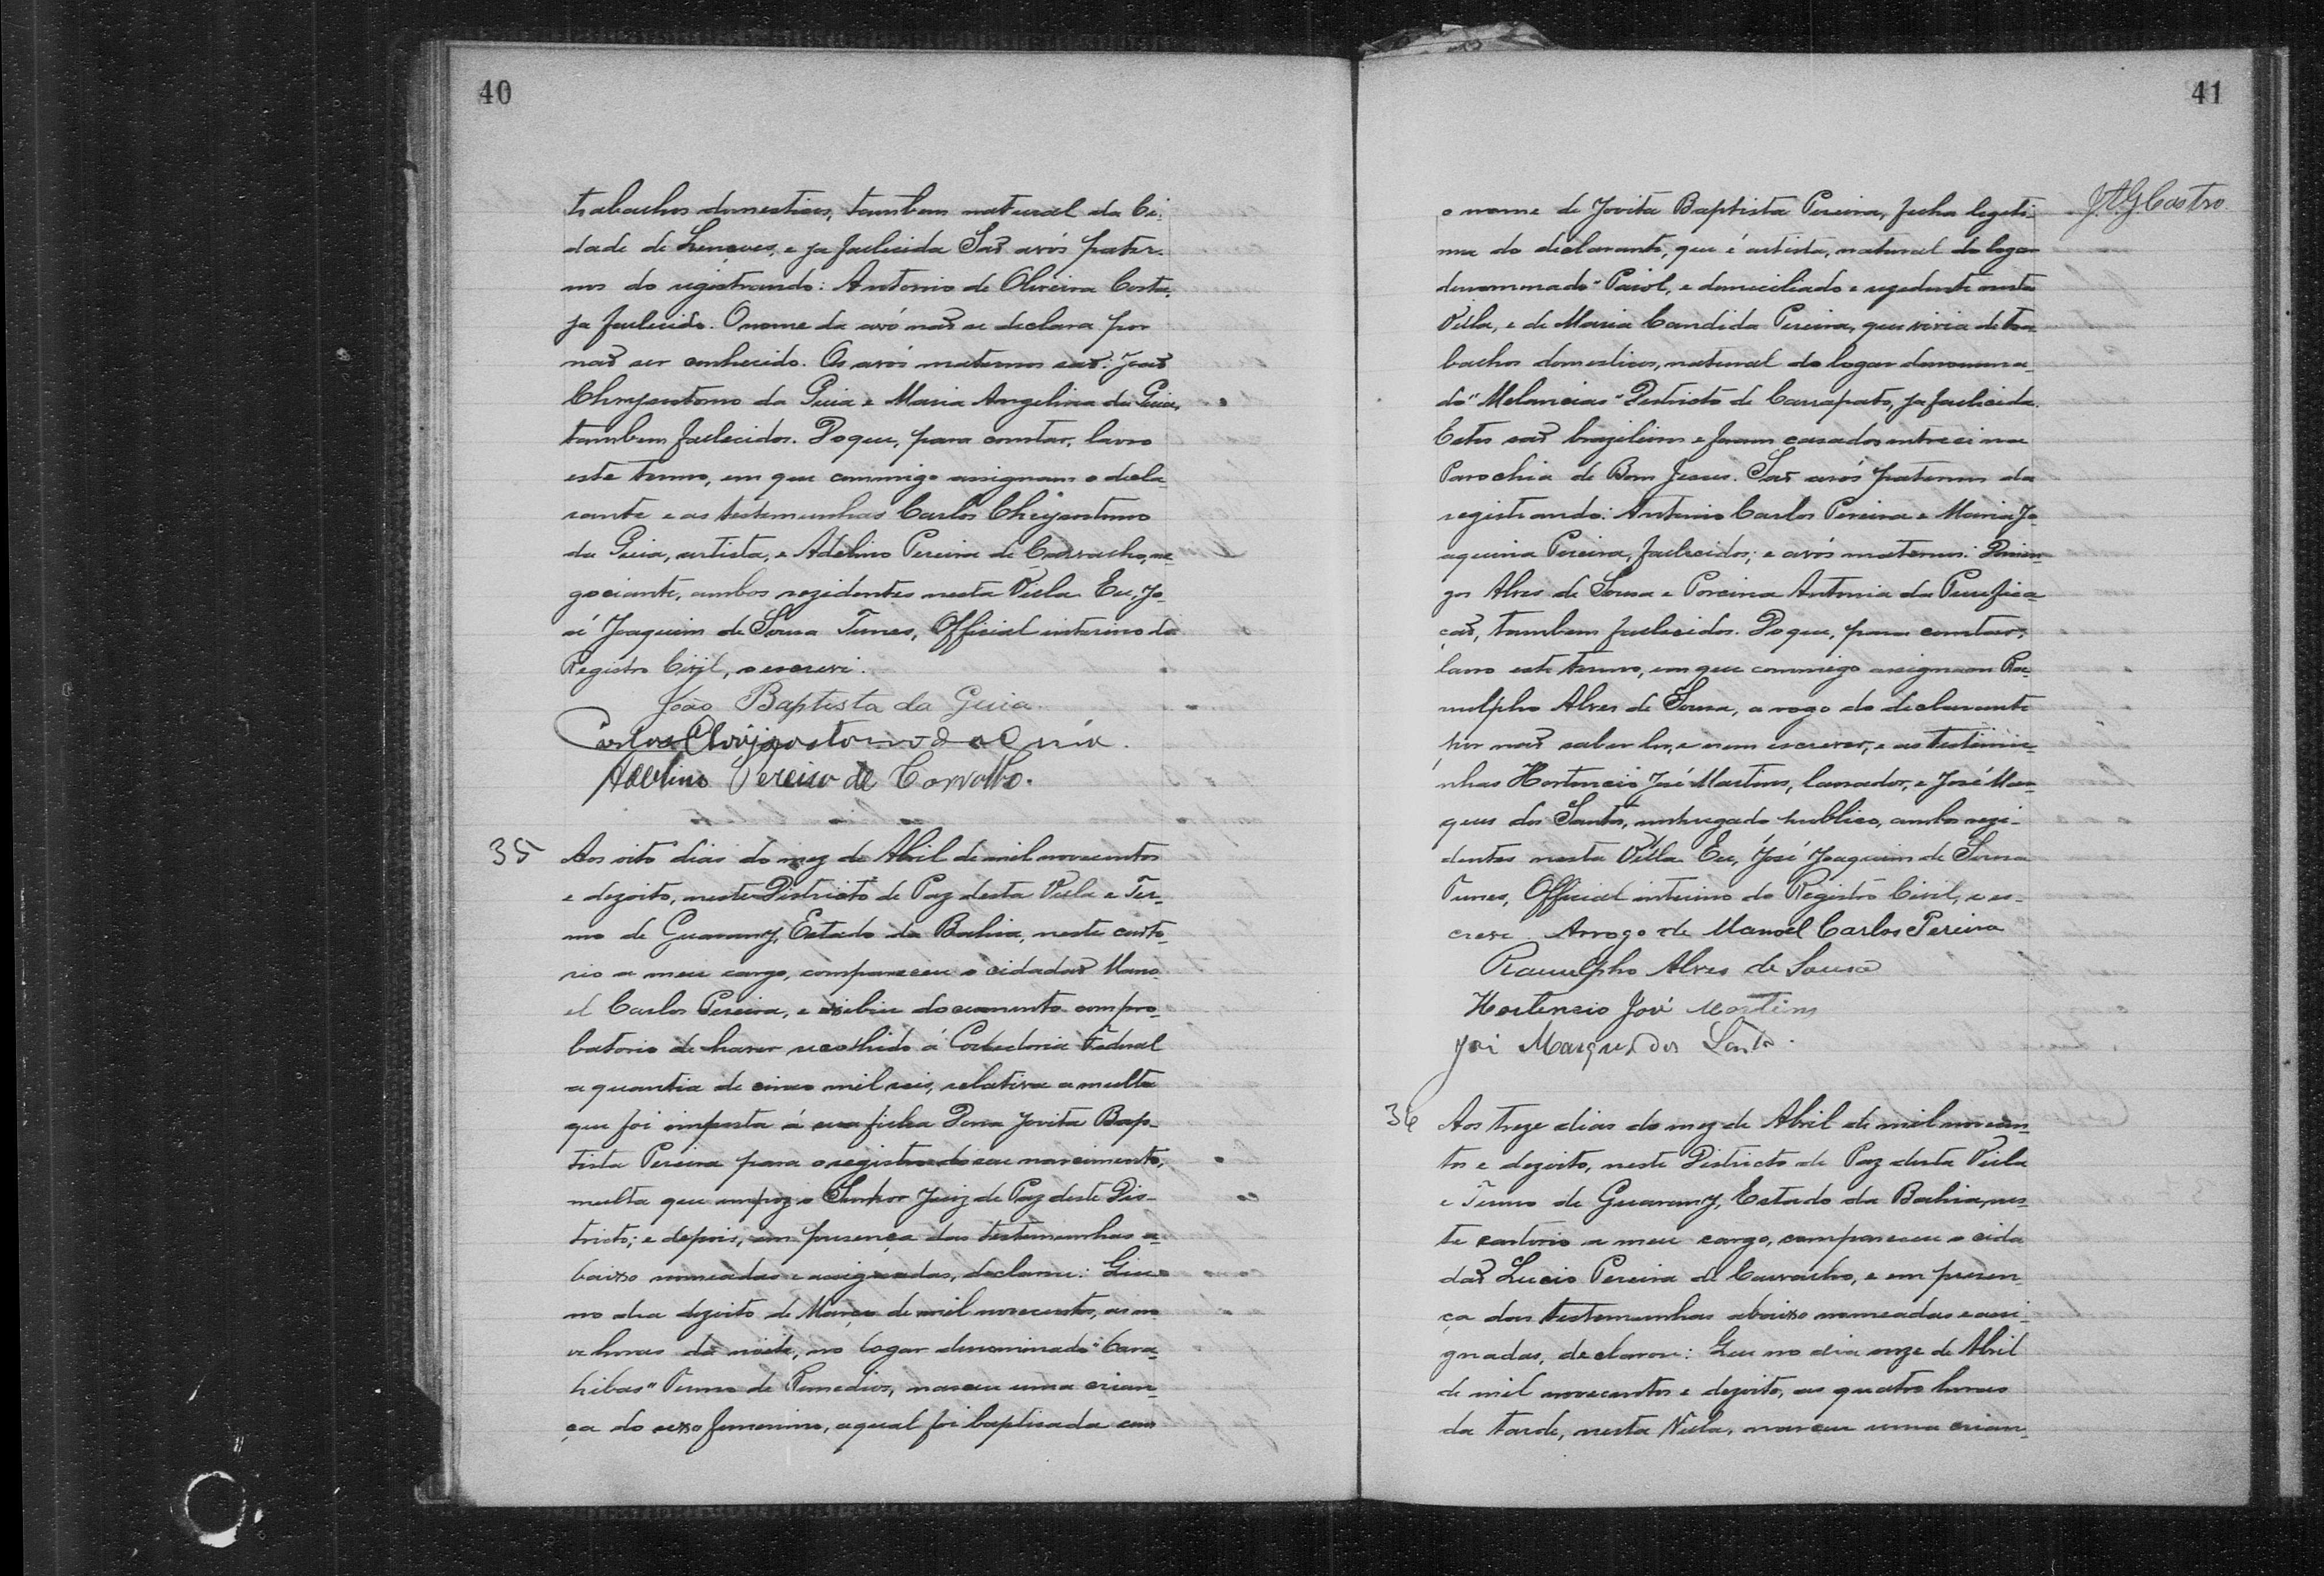 40
trabalhos domesticos, tambem natural da Ci-
dade de Lençoes, e ja fallecida. Saõ avós pater-
nos do registrando: Antonio de Oliveira Costa,
ja fallecido. O nome da avó naõ se declara por
naõ ser conhecido. Os avós maternos saõ: Joaõ
Chrysostomo da Guia e Maria Angelina da Guia,
tambem fallecidos. Do que, para constar, lavro
este termo, em que commigo assignam o decla-
rante e as testemunhas Carlos Chrysostomo
da Guia, artista, e Adelino Pereira de Carvalho, ne-
gociante, ambos rezidentes nesta Villa. Eu, Jo-
sé Joaquim de Sousa Tunes, Official interino do
Registro Civil, o escrevi.
João Baptista da Guia.
Carlos Chrijsostomo da Guia.
Adelino Pereira de Carvalho.
35 Aos oito dias do mez de Abril de mil novecentos
e dezoito, neste Districto de Paz desta Villa e Ter-
mo de Guarany, Estado da Bahia, neste carto-
rio a meu cargo, compareceu o cidadaõ Mano-
el Carlos Pereira, e exibiu documento compro-
batorio de haver recolhido á Collectoria Federal
a quantia de cinco mil reis, relativa a multa
que foi imposta á sua filha Dona Jovita Bap-
tista Pereira para o registro do seu nascimento,
multa que impoz o Senhor Juiz de Paz deste Dis-
tricto; e depois, em presença das testemunhas a-
baixo nomeadas e assignadas, declarou: Que
no dia dezoito de Março de mil novecentos, as no-
ve horas da noite, no logar denominado "Cara-
hibas" Termo de Remedios, nasceu uma crian-
ça do sexo femenino, a qual foi baptisada com
41
J.A.G.Castro.
o nome de Jovita Baptista Pereira, filha legiti-
ma do declarante, que é artista, natural do logar
denominado "Paiol, e domiciliado e rezedente nesta
Villa, e de Maria Candida Pereira, que vivia de tra-
balhos domesticos, natural do logar denomina-
do "Melancias" Districto de Carrapato, ja fallecida.
Estes saõ brazileiros e foram casados entre si na
Parochia de Bom Jesus. Saõ avós paternos da
registrando: Antonio Carlos Pereira e Maria Jo-
aquina Pereira, fallecidos; e avós maternos: Domin-
gos Alves de Sousa e Porcina Antonia da Purifica-
çaõ, tambem fallecidos. Do que, para constar,
lavro este termo, em que commigo assignam Ra-
nulpho Alves de Sousa, a rogo do declarante
por naõ saber ler, e nem escrever, e as testemu-
nhas Hortencio José Martins, lavrador, e José Mar-
ques dos Santos, empregado publico, ambos rezi-
dentes nesta Villa. Eu, José Joaquim de Sousa
Tunes, Official interino do Registro Civil, o es-
crevi. Arrogo de Manoel Carlos Pereira
Ranulpho Alves de Sousa
Hortencio José Martins
José Marques dos Santos.
36 Aos treze dias do mez de Abril de mil novecen-
tos e dezoito, neste Districto de Paz desta Villa
e Termo de Guarany, Estado da Bahia, nes-
te cartorio a meu cargo, compareceu o cida-
daõ Lucio Pereira de Carvalho, e em presen-
ça das testemunhas abaixo nomeadas e assi-
gnadas, declarou: Que no dia onze de Abril
de mil novecentos e dezoito, as quatro horas
da tarde, nesta Villa, nasceu uma crian-